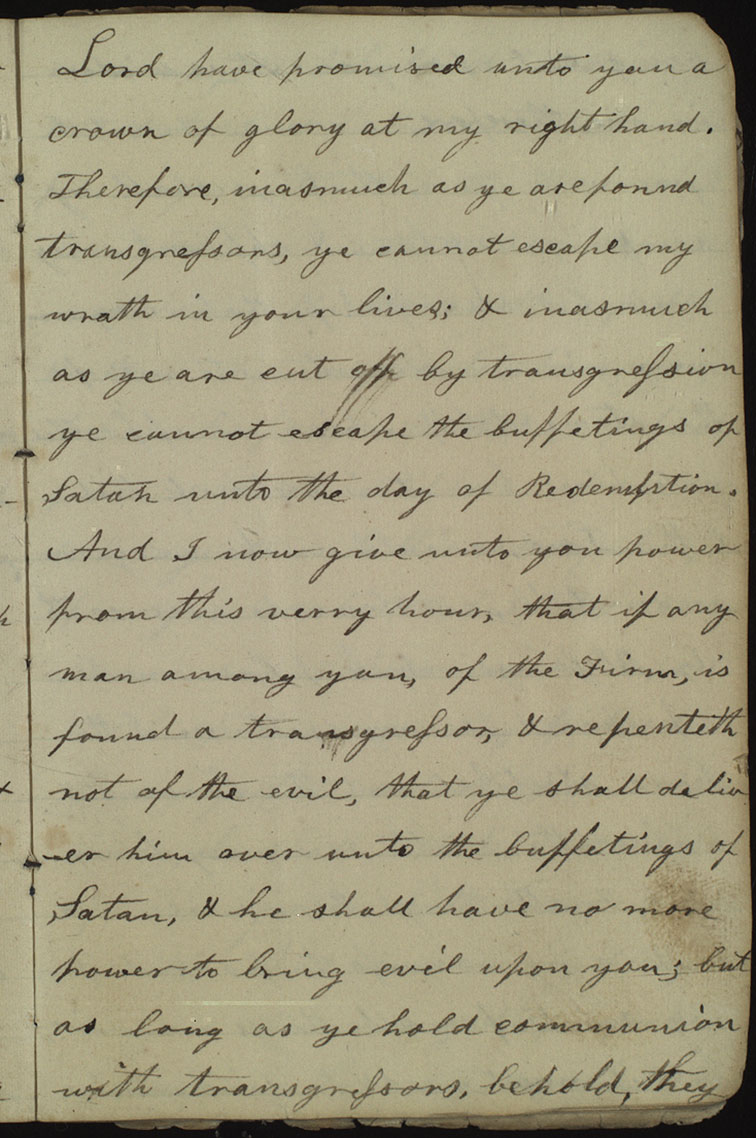 Lord have promised unto you a
crown of glory at my right hand.
Therefore, inasmuch as ye are found
transgressors, ye cannot escape my
wrath in your lives; & inasmuch
as ye are cut off by transgression
ye cannot escape the buffetings of
Satan unto the day of Redemption.
And I now give unto you power
from this verry hour, that if any
man among you, of the Firm, is
found a transgressor, & repenteth
not of the evil, that ye shall deliv
-er him over unto the buffetings of
Satan, & he shall have no more
power to bring evil upon you; but
as long as ye hold communion
with transgressors, behold, they